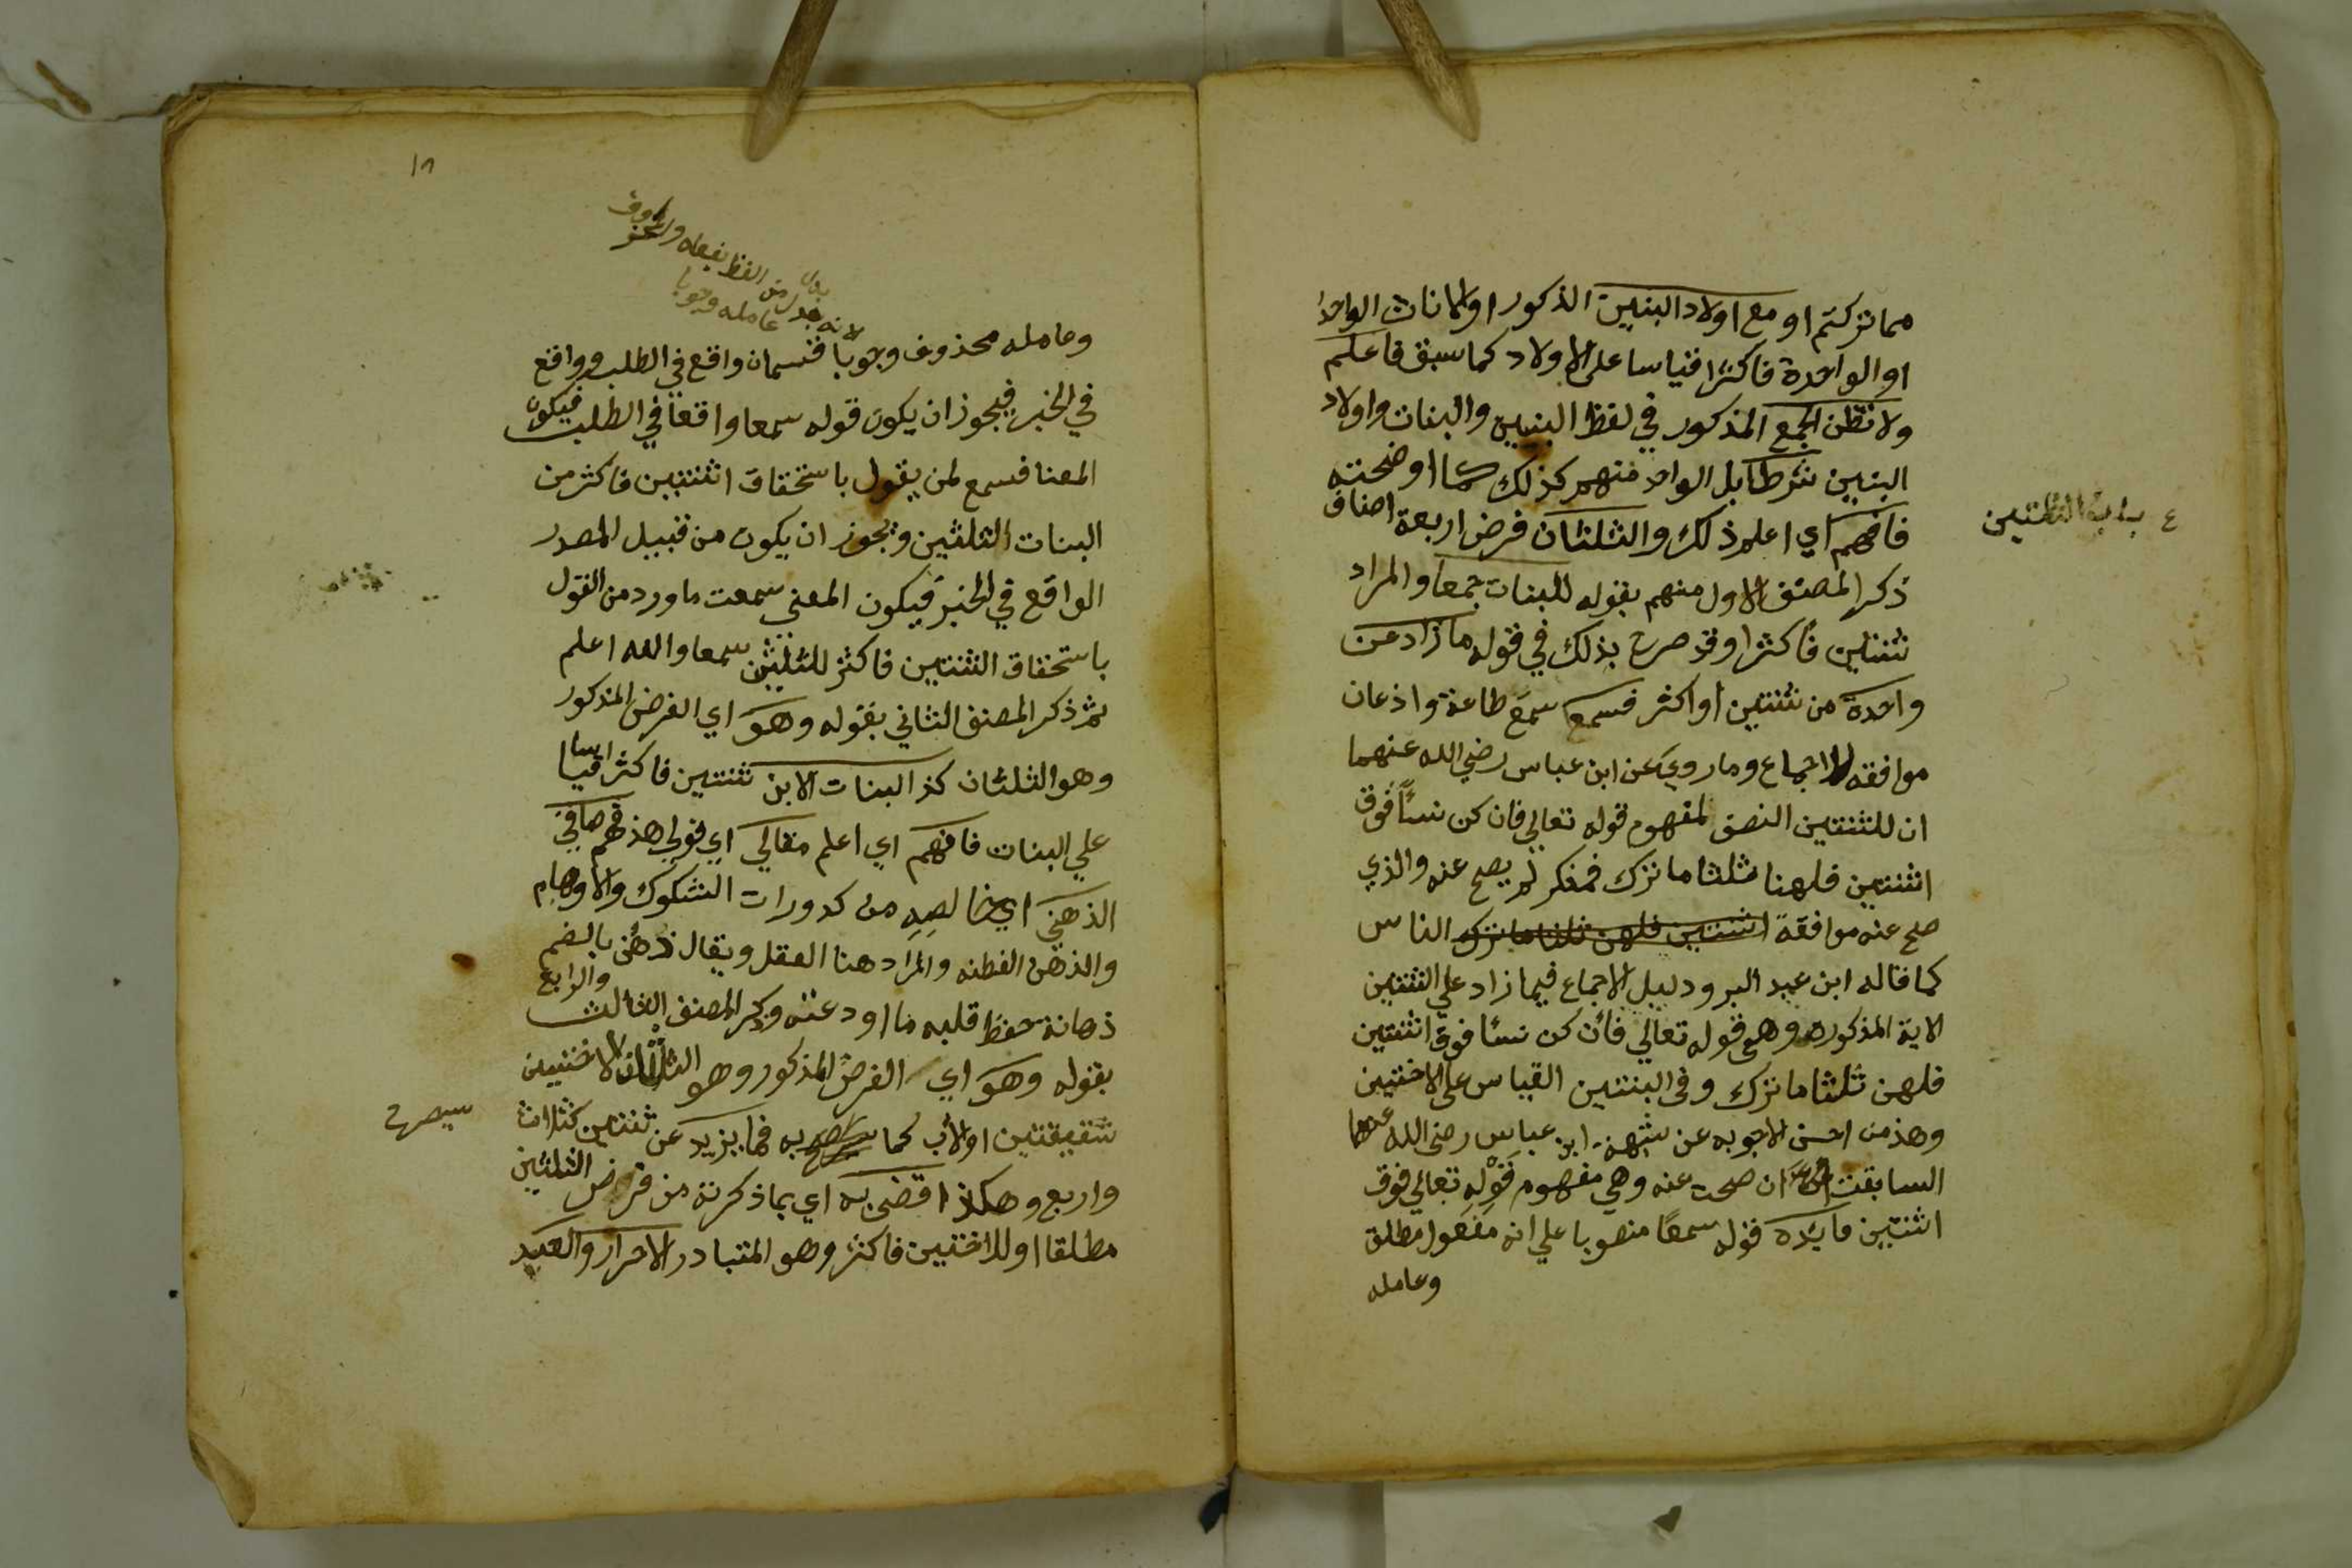 مما تركتم او مع اولاد البنين الذكور او الاناث الواحد
او الواحدة فاكثرا قياسا على الاولاد كما سبق فاعلم
ولا تظن الجمع المذكور في لفظ البنين والبنات واولاد
البنين شرطا بل الواحد منهم كذلك كما اوضحته
فافهم اي اعلم ذلك والثلثان فرض اربعة اصناف
ذكر المصنف الاول منهم بقوله للبنات جمعا والمراد
ثنتين فاكثرا وقد صرح بذلك في قوله ما زاد عن
واحدة من ثنتين او اكثر فسمعا سمع طاعة واذعان
موافقه للاجماع وما روي عن ابن عباس رضي الله عنهما
ان للثنتين النصف لمفهوم قوله تعالي فان كن نسآ فوق
اثنتين فلهنا ثلثا ما ترك فمنكر لم يصح عنه والذي
صح عنه موافقة اثنتين فلهن ثلثا ما ترك الناس
كما قاله ابن عبد البر ودليل الاجماع فيما زاد علي الثنتين
الاية المذكوره وهي قوله تعالي فان كن نسا فوق اثنتين
فلهن ثلثا ما ترك وفي البنتين القياس على الاختين
وهذ من احسن الاجوبه عن شبهة ابن عباس رضي الله عنهما
السابقت ان صحت عنه وهي مفهوم قوله تعالي فوق
اثنتين فايده قوله سمعا منصوبا علي انه مفعول مطلق
وعامله
ع باب الثلثين
١٨
لانه بدل من الفظ بفعله والمحذوف
بدل
عامله وجوبا
وعامله محذوف وجوبا قسمان واقع في الطلب وواقع
في الخبر فيجوز ان يكون قوله سمعا واقعا في الطلب فيكون
المعنا فسمع لمن يقول باستحقاق اثنتين فاكثر من
البنات الثلثين ويجوز ان يكون من قبيل المصدر
الواقع في الخبر فيكون المعني سمعت ما ورد من القول
باستحقاق الثنتين فاكثر للثلثين سمعا والله اعلم
ثم ذكر المصنف الثاني بقوله وهو اي الفرض المذكور
وهو الثلثان كذ البنات الابن ثنتين فاكثر اقياسا
علي البنات فافهم اي اعلم مقالي اي قولي هذ فهم صافي
الذهني اي خالصه من كدورات الشكوك والاوهام
والذهن الفطنه والمراد هنا العقل ويقال ذهن بالضم
ذهانة حفظ قلبه ما اودعته وذكر المصنف الثالث والرابع
بقوله وهو اي الفرض المذكور وهو الثلثان للاختين
شقيقتين او لاب كما به فما يزيد عن ثنتين كثلاث
سيصرح
واربع وهكذا قضي به اي بما ذكرته من فرض الثلثين
مطلقا او للاختين فاكثر وهو المتبادر الاحرار والعبيد